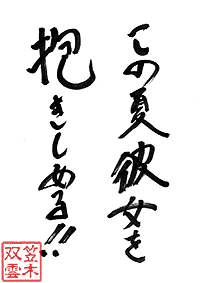 この夏彼女を
抱きしめる!!
笠木
双雲